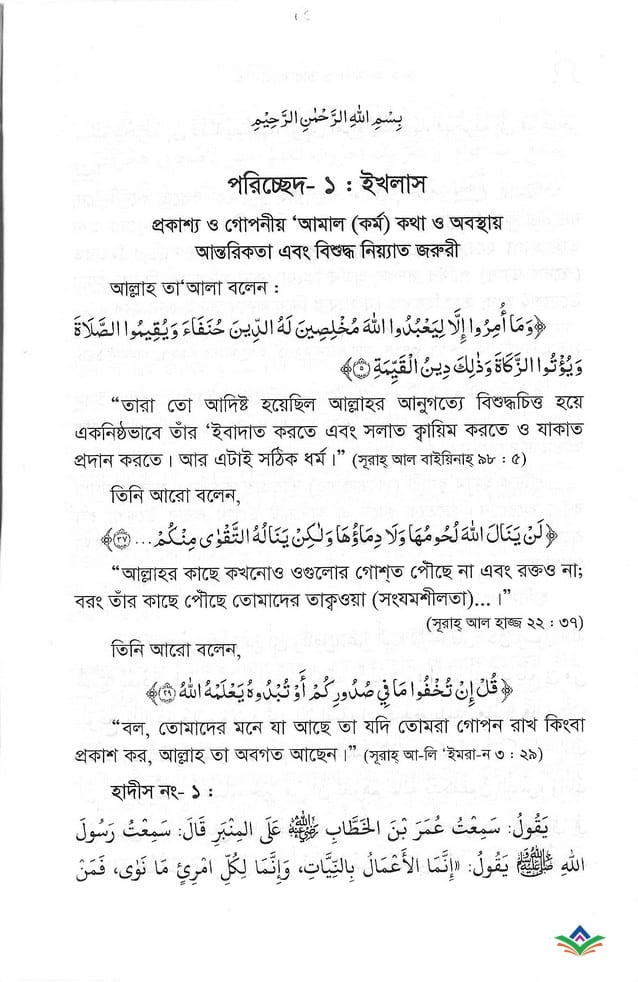 بِسْمِ اللهِ الرَّحْمٰنِ الرَّحِيْمِ
পরিচ্ছেদ- ১ : ইখলাস
প্রকাশ্য ও গোপনীয় ‘আমাল (কর্ম) কথা ও অবস্থায়
আন্তরিকতা এবং বিশুদ্ধ নিয়্যাত জরুরী
আল্লাহ তা‘আলা বলেন :
﴿وَمَا أُمِرُوا إِلَّا لِيَعْبُدُوا اللهَ مُخْلِصِينَ لَهُ الدِّينَ حُنَفَاءَ وَيُقِيمُوا الصَّلَاةَ
وَيُؤْتُوا الزَّكَاةَ وَذٰلِكَ دِينُ الْقَيِّمَةِ ﴿٥﴾﴾
“তারা তো আদিষ্ট হয়েছিল আল্লাহর আনুগত্যে বিশুদ্ধচিত্ত হয়ে
একনিষ্ঠভাবে তাঁর ‘ইবাদাত করতে এবং সলাত ক্বায়িম করতে ও যাকাত
প্রদান করতে। আর এটাই সঠিক ধর্ম।” (সূরাহ্ আল বাইয়িনাহ্ ৯৮ : ৫)
তিনি আরো বলেন,
﴿لَنْ يَنَالَ اللهَ لُحُومُهَا وَلَا دِمَاؤُهَا وَلٰكِنْ يَنَالُهُ التَّقْوٰى مِنْكُمْ ... ﴿٣٧﴾﴾
“আল্লাহর কাছে কখনোও ওগুলোর গোশ্‌ত পৌঁছে না এবং রক্তও না;
বরং তাঁর কাছে পৌঁছে তোমাদের তাক্বওয়া (সংযমশীলতা)...।”
(সূরাহ্ আল হাজ্জ ২২ : ৩৭)
তিনি আরো বলেন,
﴿قُلْ إِنْ تُخْفُوا مَا فِي صُدُورِكُمْ أَوْ تُبْدُوهُ يَعْلَمْهُ اللهُ ﴿٢٩﴾﴾
“বল, তোমাদের মনে যা আছে তা যদি তোমরা গোপন রাখ কিংবা
প্রকাশ কর, আল্লাহ তা অবগত আছেন।” (সূরাহ্ আ-লি ‘ইমরা-ন ৩ : ২৯)
হাদীস নং- ১ :
يَقُولُ: سَمِعْتُ عُمَرَ بْنَ الْخَطَّابِ ﷺ عَلَى الْمِنْبَرِ قَالَ: سَمِعْتُ رَسُولَ
اللهِ ﷺ يَقُولُ: «إِنَّمَا الأَعْمَالُ بِالنِّيَّاتِ، وَإِنَّمَا لِكُلِّ امْرِئٍ مَا نَوٰى، فَمَنْ